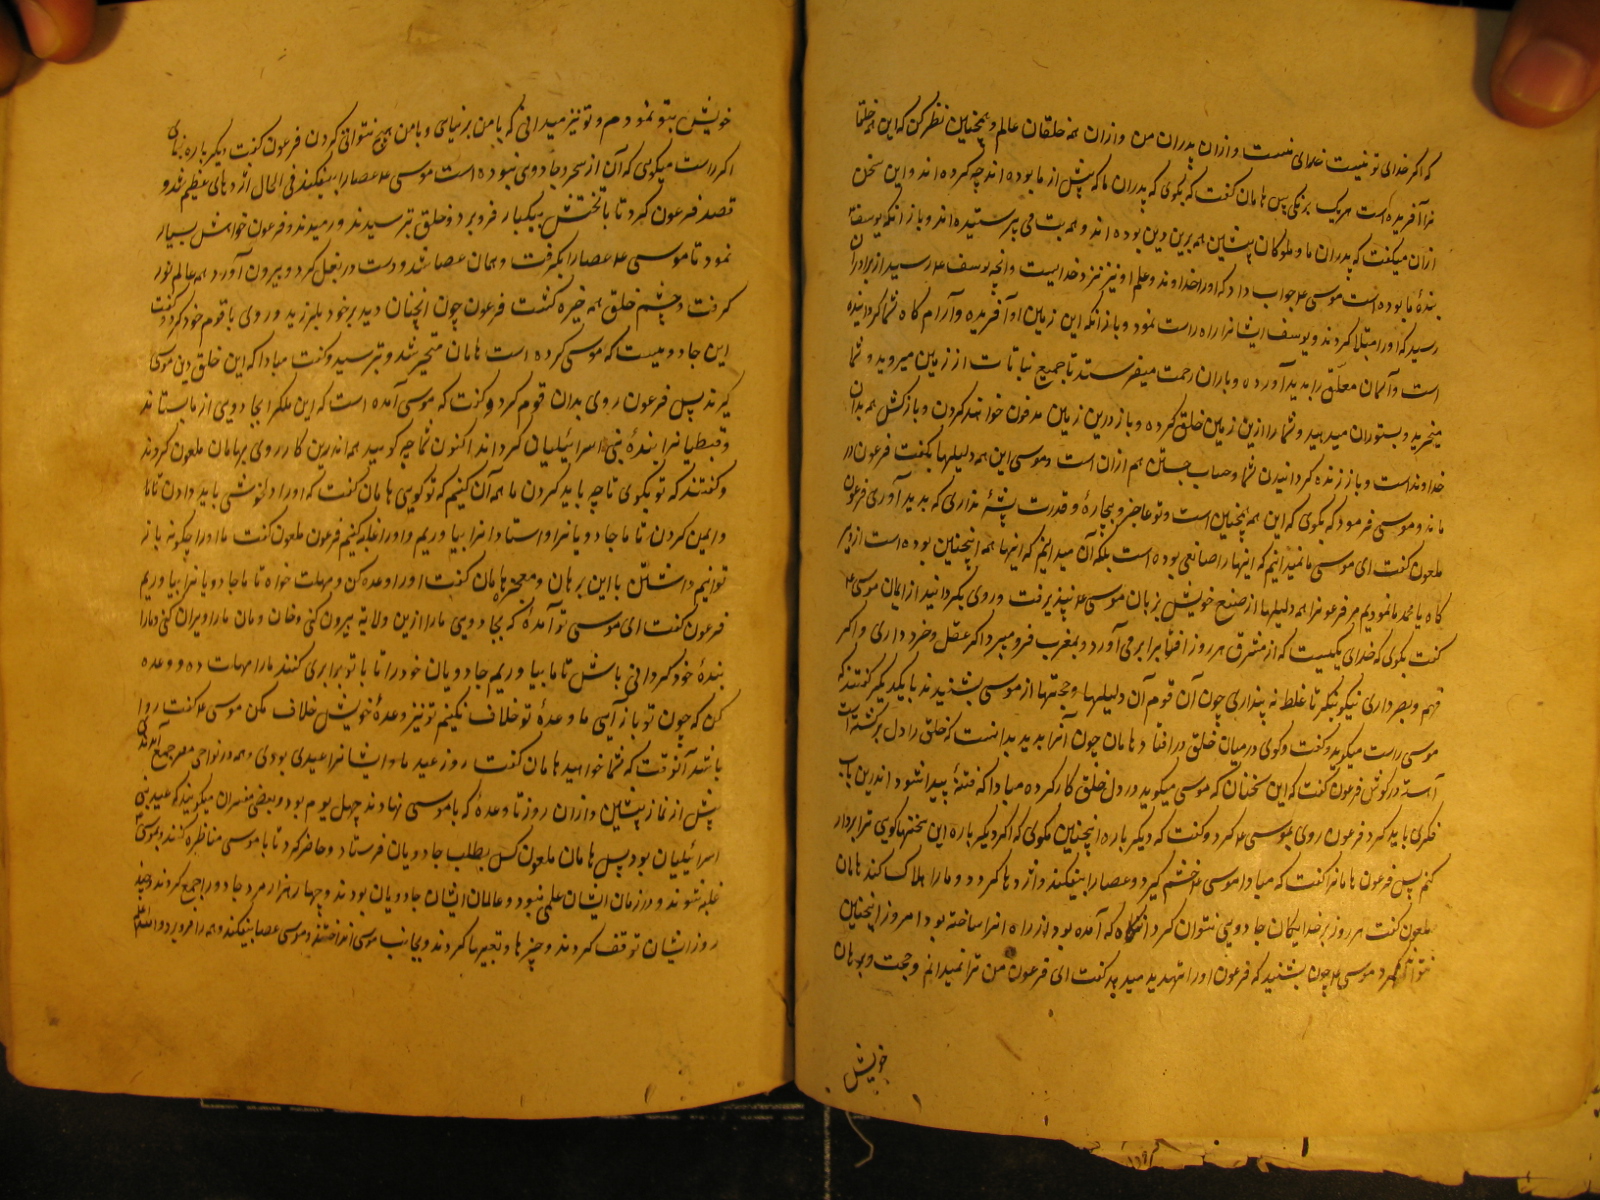 که اگر خدای تو نیست خدای منست و ازان پدران من و ازان همه خلقان عالم و همچنین نظر کن که این همه خلقها
را آفریده است هر یک بزنکی پس هامان کفت که بکوی که پدران ما که پیش از ما بوده اند چه کرده اند و این سخن
ازان میکفت که پدران ما و ملوکان پیشین همه برین دین بوده اند و همه بت می پرستیده اند و باز آنکه یوسف
بندهٔ ما بوده است موسی ع جواب داد که اورا خداوند و علم او نیز نزد خدایست و آنچه یوسف ع رسید از برادران
رسید که اورا مبتلا کردند و یوسف ایشانرا راه راست نمود و باز آنکه این زمین او آفریده و آرام کاه شما کردانیده
است و آسمان معلق را پدید آورده و باران رحمت میفرستد تا جمیع نباتات از زمین میروید و شما
میخرید و بستوران میدهید و شما را ازین زمین خلق کرده و باز درین زمین مدفون خواهند کردن و بازکشت هم بدان
خداوند است و باز زنده کردانیدن شما و حساب جستن هم ازان است و موسی این همه دلیلها بکفت فرعون در
ماند و موسی فرمود که بکوی که این همه چنین است و تو عاجز و بیچارهٔ و قدرت پشهٔ نداری که پدید آوری فرعون
ملعون کفت ای موسی ما نمیدانیم که اینهارا صانعی بوده است بلکه آن میدانیم که اینها همه اینچنین بوده است از دیر
کاه یا محمد ما نمودیم مر فرعونرا همه دلیلها از صنع خویش بزبان موسی ع نپذیرفت و روی بکردانید از ایمان موسی ع
کفت بکوی که خدای یکیست که از مشرق هر روز آفتاب را بر می آورد و بمغرب فرو میبرد اکر عقل و خرد داری و اکر
فهم و بصر داری نیکو بنکر تا غلط نه پنداری چون آن قوم آن دلیلها و حجتها از موسی بشنیدند با یکدیکر کفتند که
موسی راست میکوید و کفت و کوی در میان خلق در افتاد هامان چون آنرا بدید بدانست که خلق را دل برکشته است
آهسته در کوش فرعون کفت که این سخنان که موسی میکوید در دل خلق کار کرده مبادا که فتنهٔ پیدا شود اندرین باب
فکری باید کرد فرعون روی بموسی ع کرد و کفت که دیکر باره اینچنین مکوی که اکر دیکر باره این سخنها کوی ترا بردار
کنم پس فرعون هامانرا کفت که مبادا موسی ع خشم کیرد و عصا را بیفکند و اژدها کردد و مارا هلاک کند هامان
ملعون کفت هر روز بر خدایکان جادویی نتوان کرد آنکاه که آمده بود از راه آنرا ساخته بود امروز اینچنین
نتواند کرد موسی ع چون بشنید که فرعون اورا تهدید میدهد کفت ای فرعون من ترا نمیدانم و حجت و برهان
خویش
خویش بتو نمودم و تو نیز میدانی که با من بر نیایی و با من هیچ نتوانی کردن فرعون کفت دیکر باره بنمای
اکر راست میکویی که آن از سحر و جادوی نبوده است موسی ع عصارا بیفکند فی الحال اژدهای عظیم شد و
قصد فرعون کرد تا با تختش بیکبار فرو برد و خلق بترسیدند و رمیدند و فرعون خواهش بسیار
نمود تا موسی ع عصارا بکرفت و همان عصا شد و دست در بغل کرد و بیرون آورد همه عالم نور
کرفت و چشم خلق همه خیره کشت فرعون چون آنچنان دید بر خود بلرزید و روی با قوم خود کرد و کفت
این جادوییست که موسی کرده است هامان متحیر شد و بترسید و کفت مبادا که این خلق دین موسی
کیرند پس فرعون روی بدان قوم کرد و کفت که موسی آمده است که این ملکرا بجادویی از ما بستاند
و قبطیانرا بندهٔ بنی اسرائیلیان کرداند اکنون شما چه کویید همه اندرین کار روی بهامان ملعون کردند
و کفتند که تو بکوی تا چه باید کردن ما همه آن کنیم که تو کویی هامان کفت که اورا دلخوشی باید دادن تا ما
و ایمن کردن تا ما جادویانرا و استادانرا بیاوریم و اورا غلبه کنیم فرعون ملعون کفت ما اورا چکونه باز
توانیم داشتن با این برهان و معجزه هامان کفت اورا وعده کن و مهلت خواه تا ما جادویانرا بیاوریم
فرعون کفت ای موسی تو آمدهٔ که بجادویی مارا ازین ولایة بیرون کنی و خان و مان مارا ویران کنی و مارا
بندهٔ خود کردانی باش تا ما بیاوریم جادویان خود را تا با تو برابری کنند مارا مهلت ده و وعده
کن که چون تو باز آیی ما وعدهٔ تو خلاف نکنیم تو نیز وعدهٔ خویش خلاف مکن موسی ع کفت روا
باشد آنوقت که شما خواهید هامان کفت روز عید ما و ایشانرا عیدی بودی و همه در نواحی مصر جمع آمدندی
پیش از نماز پیشین و ازان روز تا وعدهٔ که با موسی نهادند چهل یوم بود و بعضی مفسران میکویند که عید بنی
اسرائیلیان بود پس هامان ملعون کس بطلب جادویان فرستاد و حاضر کرد تا با موسی مناظره کنند و بموسی
غلبه شوند و در زمان ایشان علمی نبود و عالمان ایشان جادویان بودند و چهار هزار مرد جادو را جمع کردند و چند
روز ایشان توقف کردند و چیزها و تعبیرها کردند و بجانب موسی انداختند و موسی عصا بیفکند و همه را فرو برد و الله اعلم